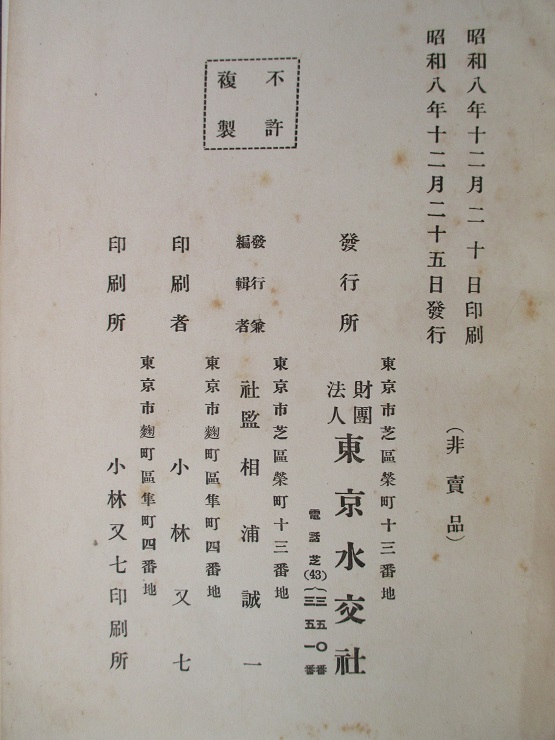 昭和八年十二月二十日印刷
昭和八年十二月二十五日發行
(非賣品)
不許
複製
東京市芝區榮町十三番地
發行所 財團法人 東京水交社
電話芝(43){三五一〇番
三五一一番
東京市芝區榮町十三番地
發行兼編輯者 社監 相浦誠一
東京市麴町區隼町四番地
印刷者 小林又七
東京市麴町區隼町四番地
印刷所 小林又七印刷所